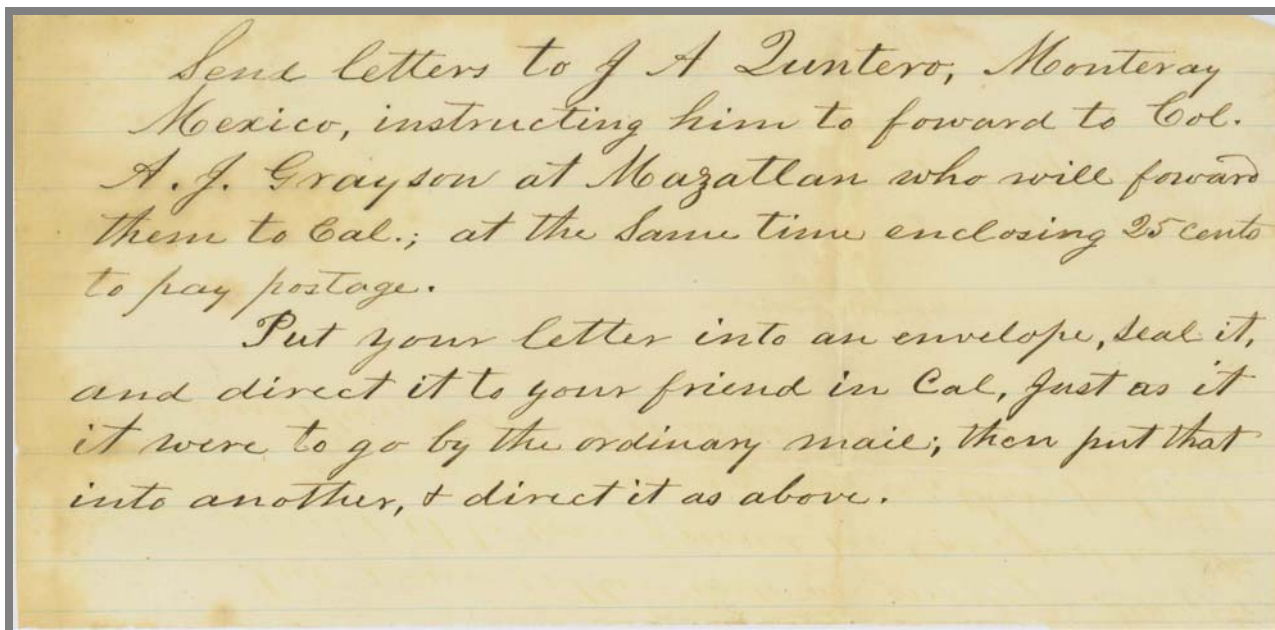 Send letters to J A Quntero, Monteray
Mexico, instructing him to foward to Col.
A. J. Grayson at Mazatlan who will foward
them to Cal.; at the same time enclosing 25 cents
to pay postage.
Put your letter into an envelope, seal it,
and direct it to your friend in Cal, Just as it
it were to go by the ordinary mail; then put that
into another, & direct it as above.